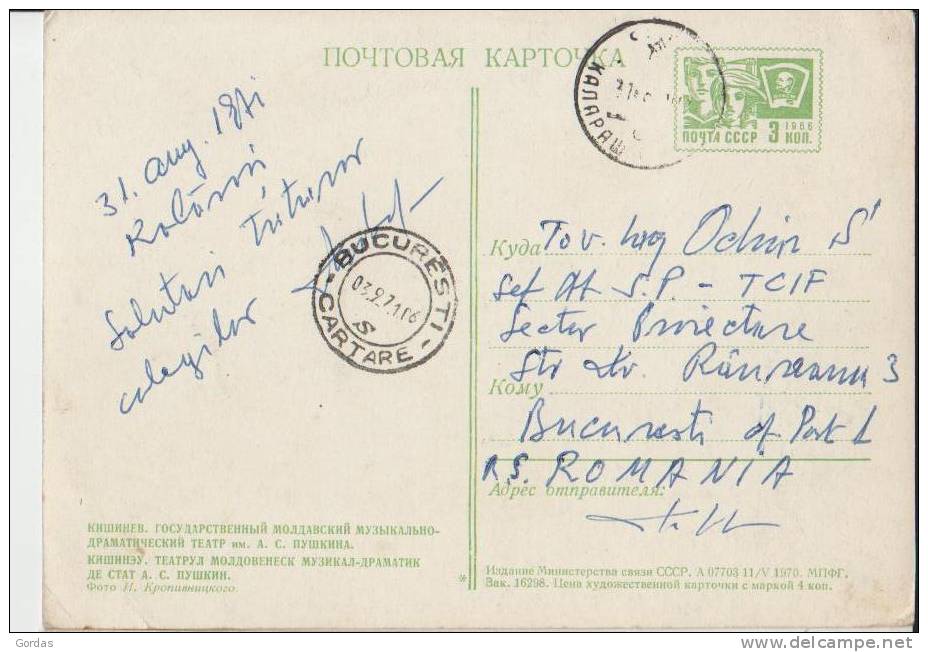 ПОЧТОВАЯ КАРТОЧКА
КАЛАРАШ
1966
ПОЧТА СССР 3 КОП.
31. aug. 1971
Salutări tuturor
colegilor
BUCUREȘTI
03.9.71.06
S
CARTARE
Куда Tov. Ing Ochin S
Șef At S.P. - TCIF
Sector Proiectare
Str
3
Кому
București of Post 1
R.S. ROMANIA
Адрес отправителя:
КИШИНЕВ. ГОСУДАРСТВЕННЫЙ МОЛДАВСКИЙ МУЗЫКАЛЬНО-
ДРАМАТИЧЕСКИЙ ТЕАТР им. А. С. ПУШКИНА.
КИШИНЭУ. ТЕАТРУЛ МОЛДОВЕНЕСК МУЗИКАЛ-ДРАМАТИК
ДЕ СТАТ А. С. ПУШКИН.
Фото И. Кропивницкого.
*
Издание Министерства связи СССР. А 07703 11/V 1970. МПФГ.
Зак. 16298. Цена художественной карточки с маркой 4 коп.
Gordas
http://www.delcampe.net